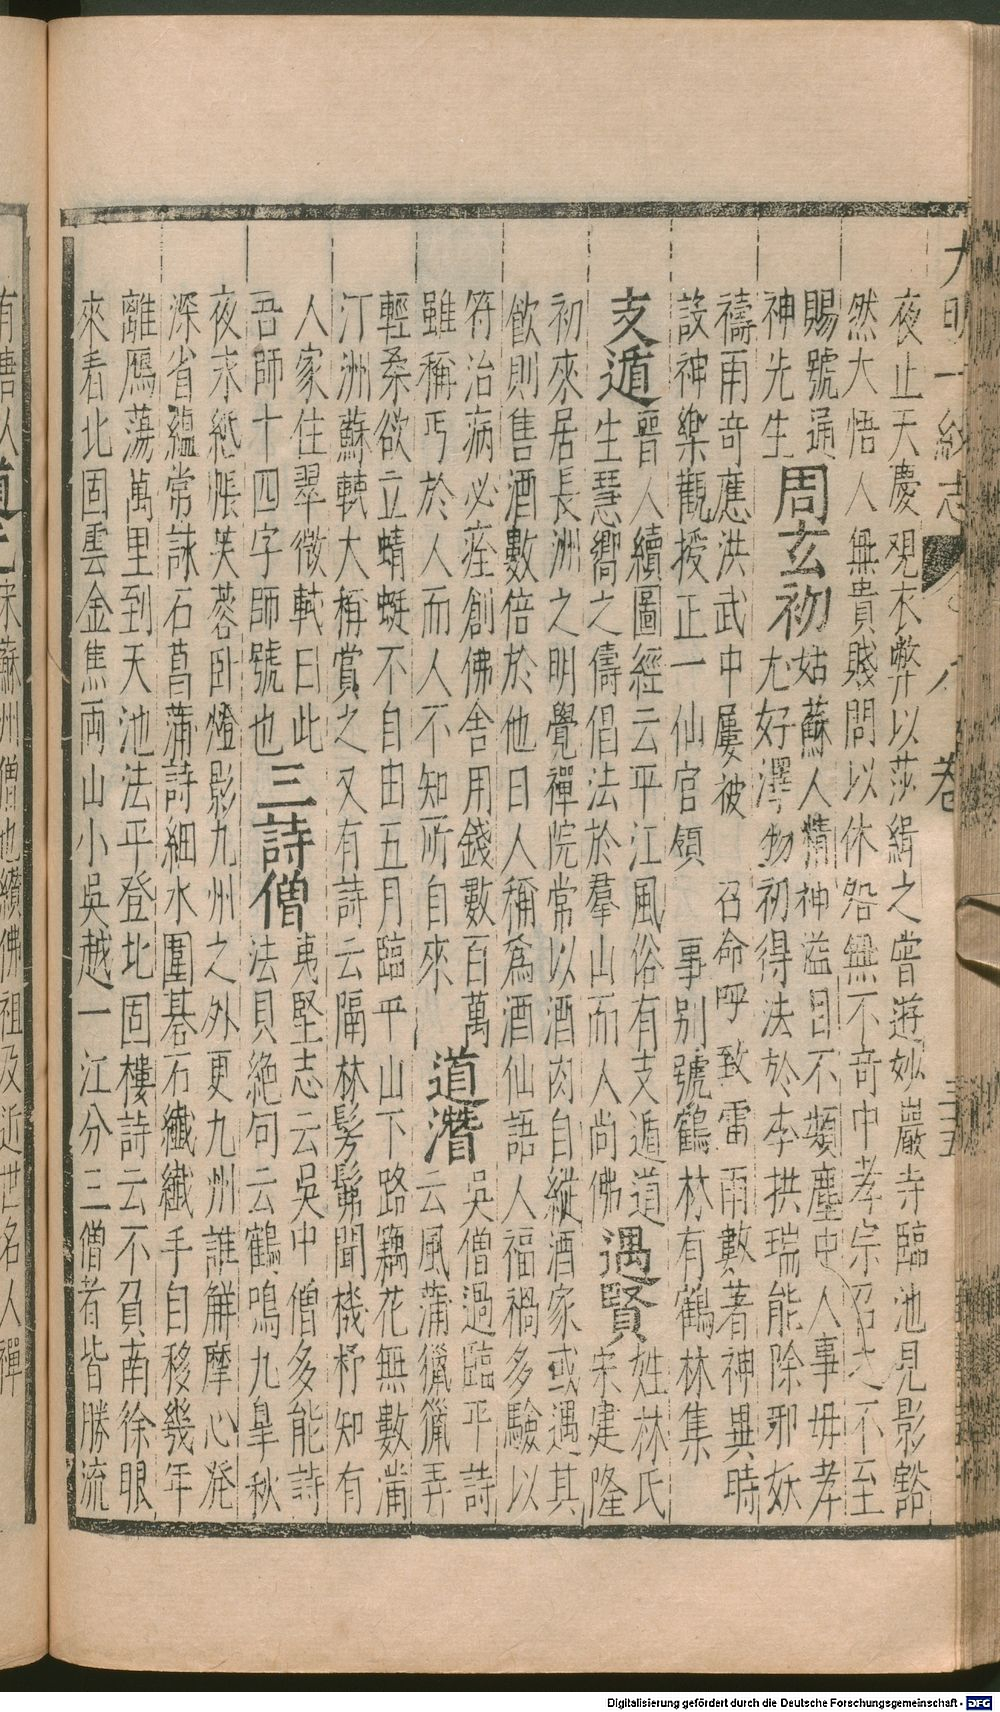 大明一統志 卷八 三五
夜止天慶覌衣弊以莎緝之嘗遊妙嚴寺臨池見影豁
然大悟人無貴賤問以休咎無不奇中孝宗召之不至
賜號通
神先生
周玄初
姑蘇人精神溢目不類塵中人事毋孝
尤好澤物初得法於李拱瑞能除邪妖
禱雨奇應洪武中屢被 召命呼致雷雨數著神異時
設神樂觀授正一仙官領 事别號鶴林有鶴林集
支遁
晉人續圖經云平江風俗有支遁道
生慧嚮之儔倡法於羣山而人尚佛
遇賢
姓林氏
宋建隆
初來居長洲之明覺禪院常以酒肉自縱酒家或遇其
飲則售酒數倍於他日人稱為酒仙語人福禍多驗以
符治病必痊創佛舍用錢數百萬
雖稱丐於人而人不知所自來
道潛
吳僧過臨平詩
云風蒲獵獵弄
輕柔欲立蜻蜓不自由五月臨平山下路藕花無數滿
汀洲蘇軾大稱賞之又有詩云隔林髣髴聞機杼知有
人家住翠微軾曰此
吾師十四字師號也
三詩僧
夷堅志云吳中僧多能詩
法貝絶句云鶴鳴九臯秋
夜末紙帳芙蓉卧燈影九州之外更九州誰解摩心発
深省蘊常詠石菖蒲詩細水圍碁石纖纖手自移幾年
離鴈蕩萬里到天池法平登北固樓詩云不負南徐眼
來看北固雲金焦兩山小吳越一江分三僧者皆勝流
宋蘇州僧也纘佛祖及近世名人禪
Digitalisierung gefördert durch die Deutsche Forschungsgemeinschaft - DFG